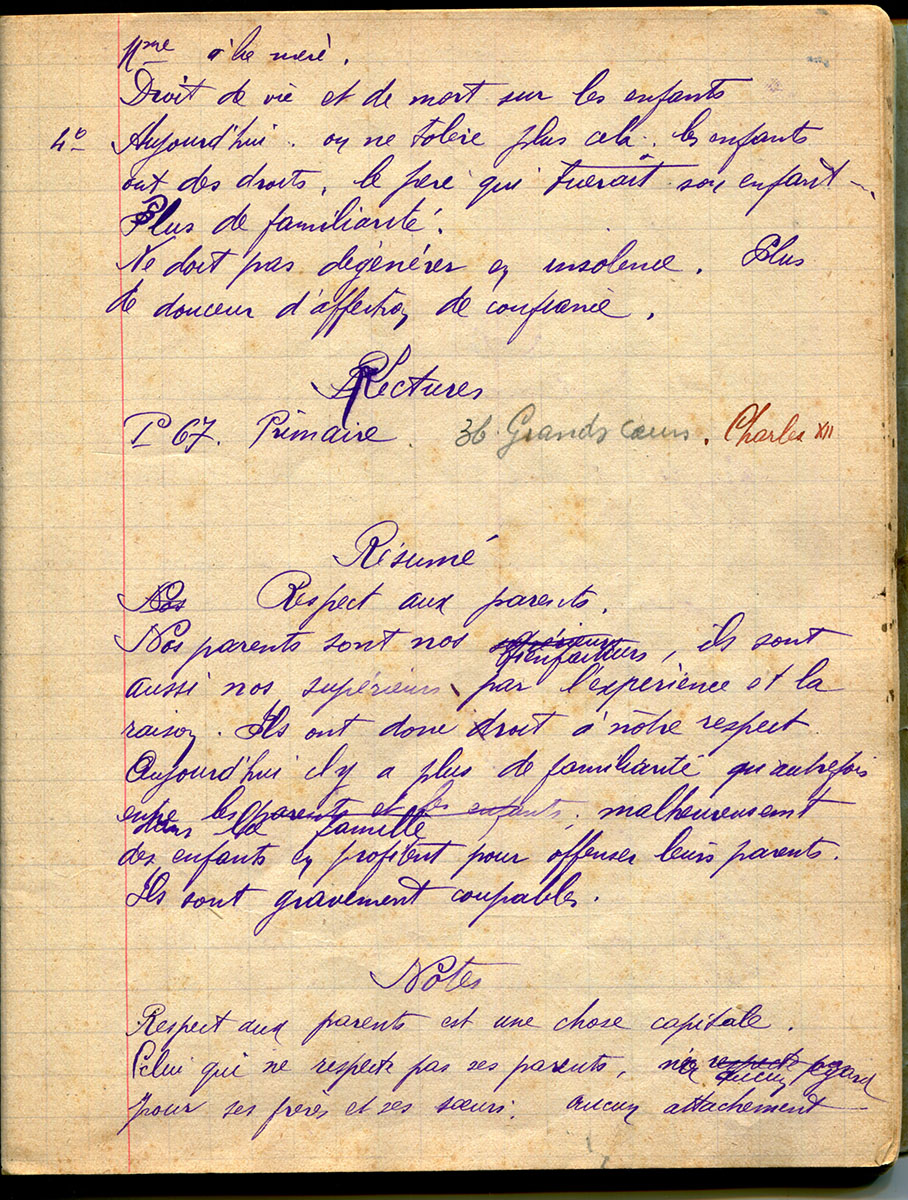 Mme à la mère.
Droit de vie et de mort sur les enfants
4° Aujourd'hui. on ne tolère plus cela. les enfants
ont des droits, le père qui tuerait son enfant —
Plus de familiarité.
Ne doit pas dégénérer en insolence. Plus
de douceur d'affection de confiance.
Lectures
P 67. Primaire. 36 Grands cœurs. Charles XII
Résumé
Nos Respect aux parents.
Nos parents sont nos supérieurs bienfaiteurs, ils sont
aussi nos supérieurs par l'expérience et la
raison. Ils ont donc droit à nôtre respect.
Aujourd'hui il y a plus de familiarité qu'autrefois
entre les parents et les enfants, malheureusement
dans la famille
des enfants en profitent pour offenser leurs parents.
Ils sont gravement coupables.
Notes
Respect aux parents est une chose capitale.
Celui qui ne respecte pas ses parents, n'a respecte aucun égard
pour ses frères et ses sœurs, aucun attachement